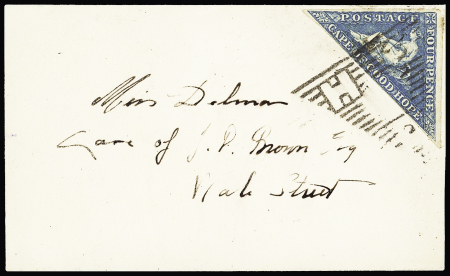 POSTAGE
FOUR PENCE
CAPE OF GOOD HOPE
Miss Delman
Care of J. P. Brown Esq
Wale Street